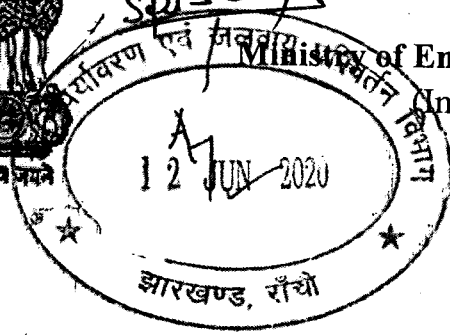 Ministry of En
पर्यावरण एवं जलवायु परिवर्तन विभाग
(In
12 JUN 2020
झारखण्ड, राँची